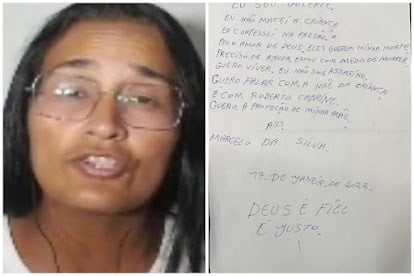 EU SOU INOCENTE.
EU NÃO MATEI A CRIANÇA
EU CONFESSEI NA PRESÃO.
PELO AMOR DE DEUS, ELES QUEREM MINHA MORTE
PRECISO DE AJUDA. ESTOU COM MEDO DE MORRER
QUERO VIVER. EU NÃO SOU ASSASINO.
QUERO FALAR COM A MÃE DA CRIANÇA
E COM ROBERTO CABRINE.
QUERO A PROTEÇÃO DE MINHA MÃE
ASS
MARCELO DA SILVA.
17. DE JANEIR. DE 2022.
DEUS É FIEL
E JUSTO.